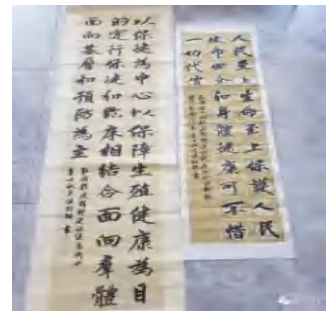 人民至上生命至上保護人民
生命安全和身體健康可不惜
一切代價
以保健為中心以保障生殖健康為目
的實行保健和臨床相結合面向群體
面向基層和預防為主